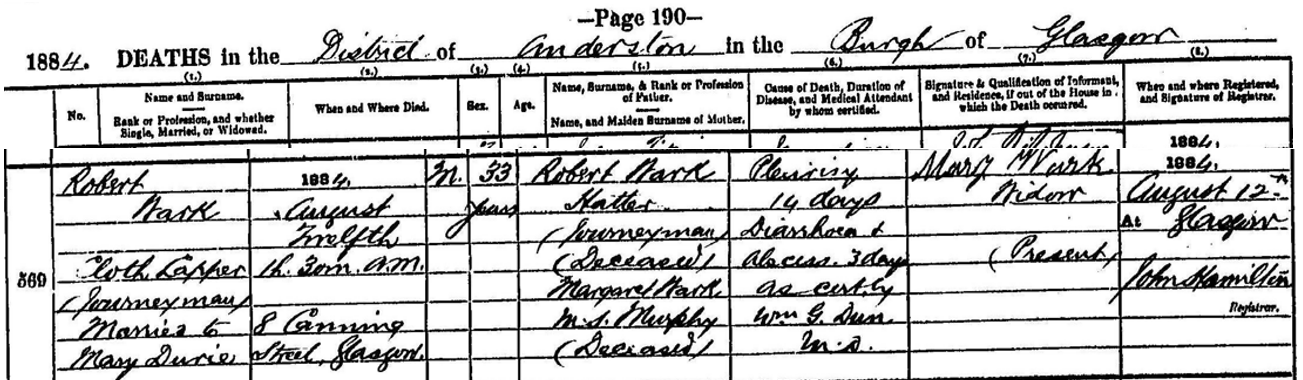 —Page 190—
1884. DEATHS in the District of Anderston in the Burgh of Glasgow
(1.) (2.) (3.) (4.) (5.) (6.) (7.) (8.)
No.
Name and Surname.
Rank or Profession, and whether
Single, Married, or Widowed.
When and Where Died.
Sex.
Age.
Name, Surname, & Rank or Profession
of Father.
Name, and Maiden Surname of Mother.
Cause of Death, Duration of
Disease, and Medical Attendant
by whom certified.
Signature & Qualification of Informant,
and Residence, if out of the House in
which the Death occurred.
When and where Registered,
and Signature of Registrar.
1884.
569
Robert
Wark
Cloth Lapper
(Journeyman)
Married to
Mary Durie
1884.
August
Twelfth
1h. 30m. A.M.
8 Canning
Street, Glasgow.
M.
33
years
Robert Wark
Hatter
(Journeyman)
(Deceased)
Margaret Wark
M.S. Murphy
(Deceased)
Pleurisy
14 days
Diarrhoea &
abscess. 3 days
as cert. by
Wm G. Dun.
M.D.
Mary Wark
Widow
(Present)
1884.
August 12th
At Glasgow
John Hamilton
Registrar.